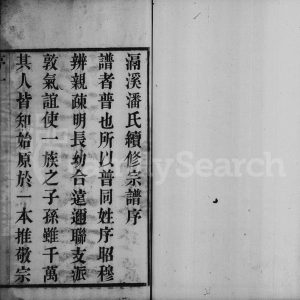 滆溪潘氏續修宗譜序
譜者普也所以普同姓序昭穆
辨親疎明長幼合遠邇聯支派
敦氣誼使一族之子孫雖千萬
其人皆知始原於一本推敬宗
FamilySearch